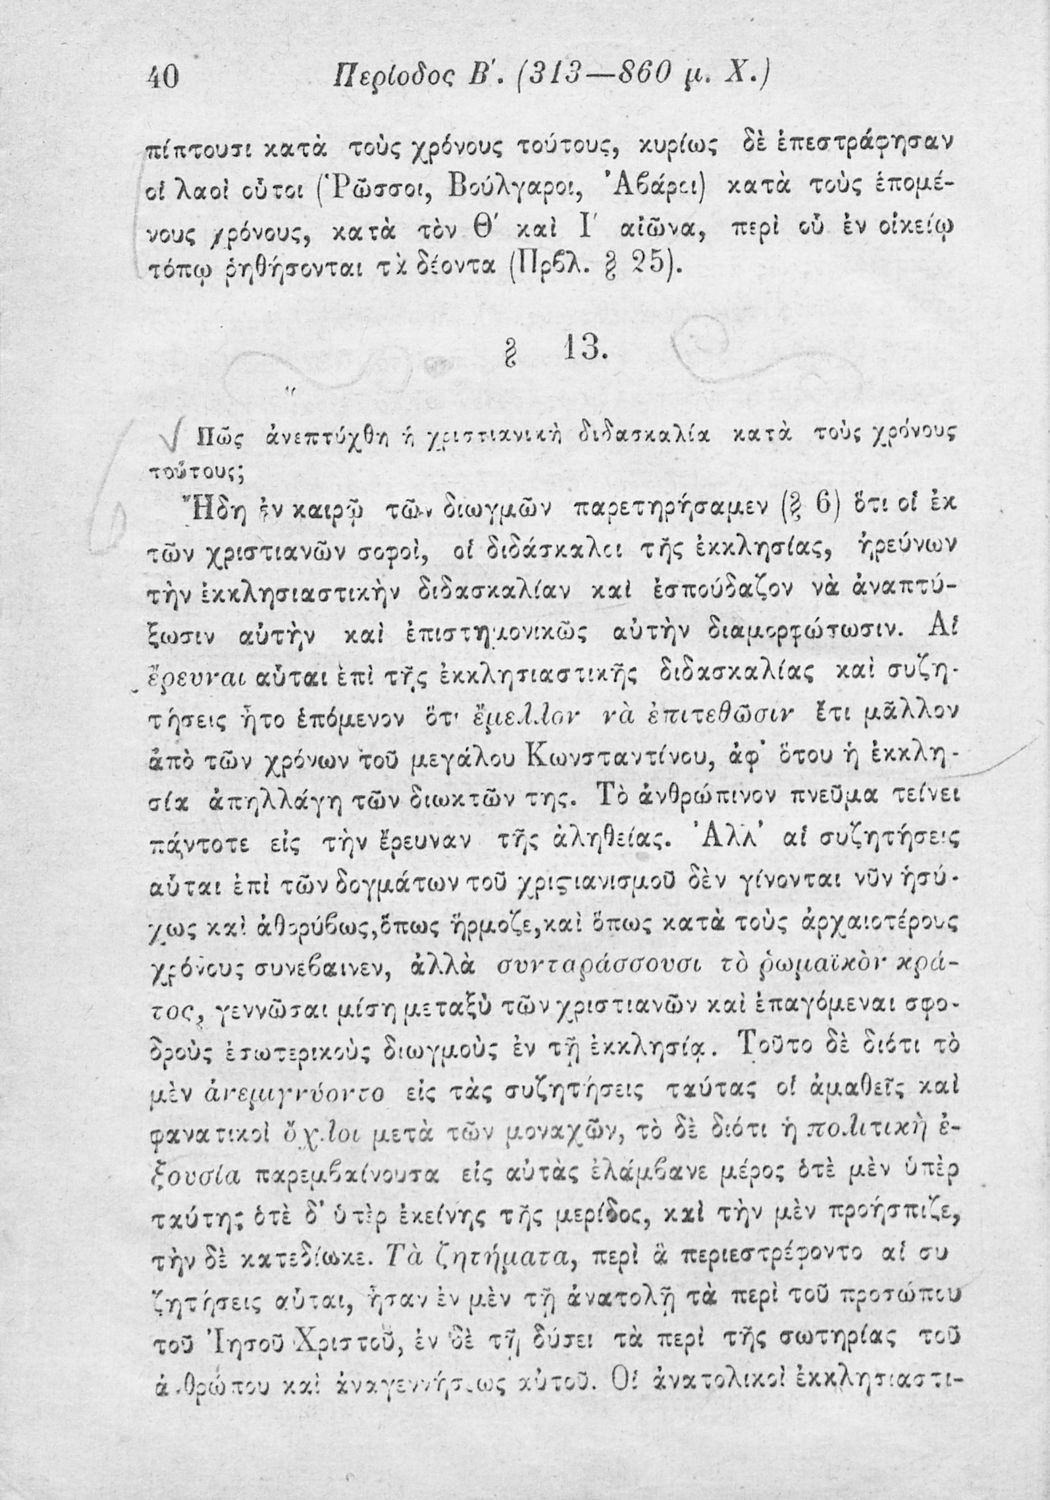 40 Περίοδος Β΄. (313—860 μ. Χ.)
πίπτουσι κατὰ τοὺς χρόνους τούτους, κυρίως δὲ ἐπεστράφησαν
οἱ λαοὶ οὗτοι (Ῥῶσσοι, Βούλγαροι, Ἀβάροι) κατὰ τοὺς ἑπομέ-
νους χρόνους, κατὰ τὸν Θ΄ καὶ Ι΄ αἰῶνα, περὶ οὗ ἐν οἰκείῳ
τόπῳ ῥηθήσονται τὰ δέοντα (Πρβλ. § 25).
§ 13.
Πῶς ἀνεπτύχθη ἡ χριστιανικὴ διδασκαλία κατὰ τοὺς χρόνους
τούτους;
Ἤδη ἐν καιρῷ τῶν διωγμῶν παρετηρήσαμεν (§ 6) ὅτι οἱ ἐκ
τῶν χριστιανῶν σοφοὶ, οἱ διδάσκαλοι τῆς ἐκκλησίας, ἠρεύνων
τὴν ἐκκλησιαστικὴν διδασκαλίαν καὶ ἐσπούδαζον νὰ ἀναπτύ-
ξωσιν αὐτὴν καὶ ἐπιστημονικῶς αὐτὴν διαμορφώσωσιν. Αἱ
ἔρευναι αὗται ἐπὶ τῆς ἐκκλησιαστικῆς διδασκαλίας καὶ συζη-
τήσεις ἦτο ἑπόμενον ὅτι ἔμελλον νὰ ἐπιτεθῶσιν ἔτι μᾶλλον
ἀπὸ τῶν χρόνων τοῦ μεγάλου Κωνσταντίνου, ἀφ᾽ ὅτου ἡ ἐκκλη-
σία ἀπηλλάγη τῶν διωκτῶν της. Τὸ ἀνθρώπινον πνεῦμα τείνει
πάντοτε εἰς τὴν ἔρευναν τῆς ἀληθείας. Ἀλλ᾽ αἱ συζητήσεις
αὗται ἐπὶ τῶν δογμάτων τοῦ χριςιανισμοῦ δὲν γίνονται νῦν ἡσύ-
χως καὶ ἀθορύβως, ὅπως ἥρμοζε, καὶ ὅπως κατὰ τοὺς ἀρχαιοτέρους
χρόνους συνέβαινεν, ἀλλὰ συνταράσσουσι τὸ ῥωμαϊκὸν κρά-
τος, γεννῶσαι μίση μεταξὺ τῶν χριστιανῶν καὶ ἐπαγόμεναι σφο-
δροὺς ἐσωτερικοὺς διωγμοὺς ἐν τῇ ἐκκλησίᾳ. Τοῦτο δὲ διότι τὸ
μὲν ἀνεμιγνύοντο εἰς τὰς συζητήσεις ταύτας οἱ ἀμαθεῖς καὶ
φανατικοὶ ὄχλοι μετὰ τῶν μοναχῶν, τὸ δὲ διότι ἡ πολιτικὴ ἐ-
ξουσία παρεμβαίνουσα εἰς αὐτὰς ἐλάμβανε μέρος ὁτὲ μὲν ὑπὲρ
ταύτης ὁτὲ δ᾽ ὑπὲρ ἐκείνης τῆς μερίδος, καὶ τὴν μὲν προήσπιζε,
τὴν δὲ κατεδίωκε. Τὰ ζητήματα, περὶ ἃ περιεστρέφοντο αἱ συ
ζητήσεις αὗται, ἦσαν ἐν μὲν τῇ ἀνατολῇ τὰ περὶ τοῦ προσώπου
τοῦ Ἰησοῦ Χριστοῦ, ἐν δὲ τῇ δύσει τὰ περὶ τῆς σωτηρίας τοῦ
ἀνθρώπου καὶ ἀναγεννήσεως αὐτοῦ. Οἱ ἀνατολικοὶ ἐκκλησιαστι-